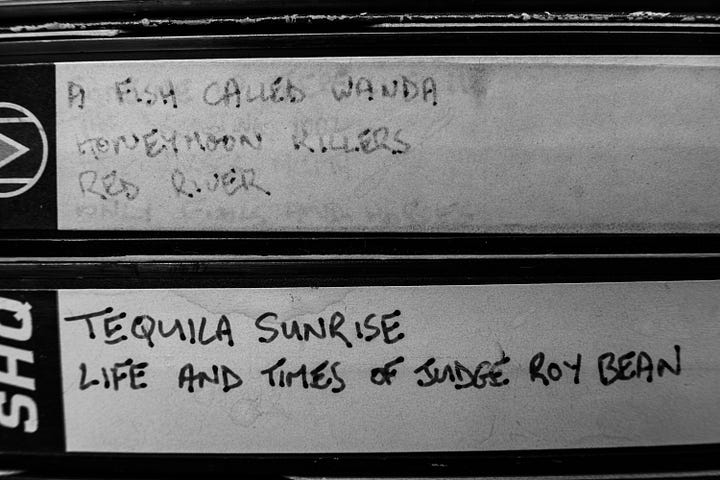 A FISH CALLED WANDA
HONEYMOON KILLERS
RED RIVER
SHQ
TEQUILA SUNRISE
LIFE AND TIMES OF JUDGE ROY BEAN